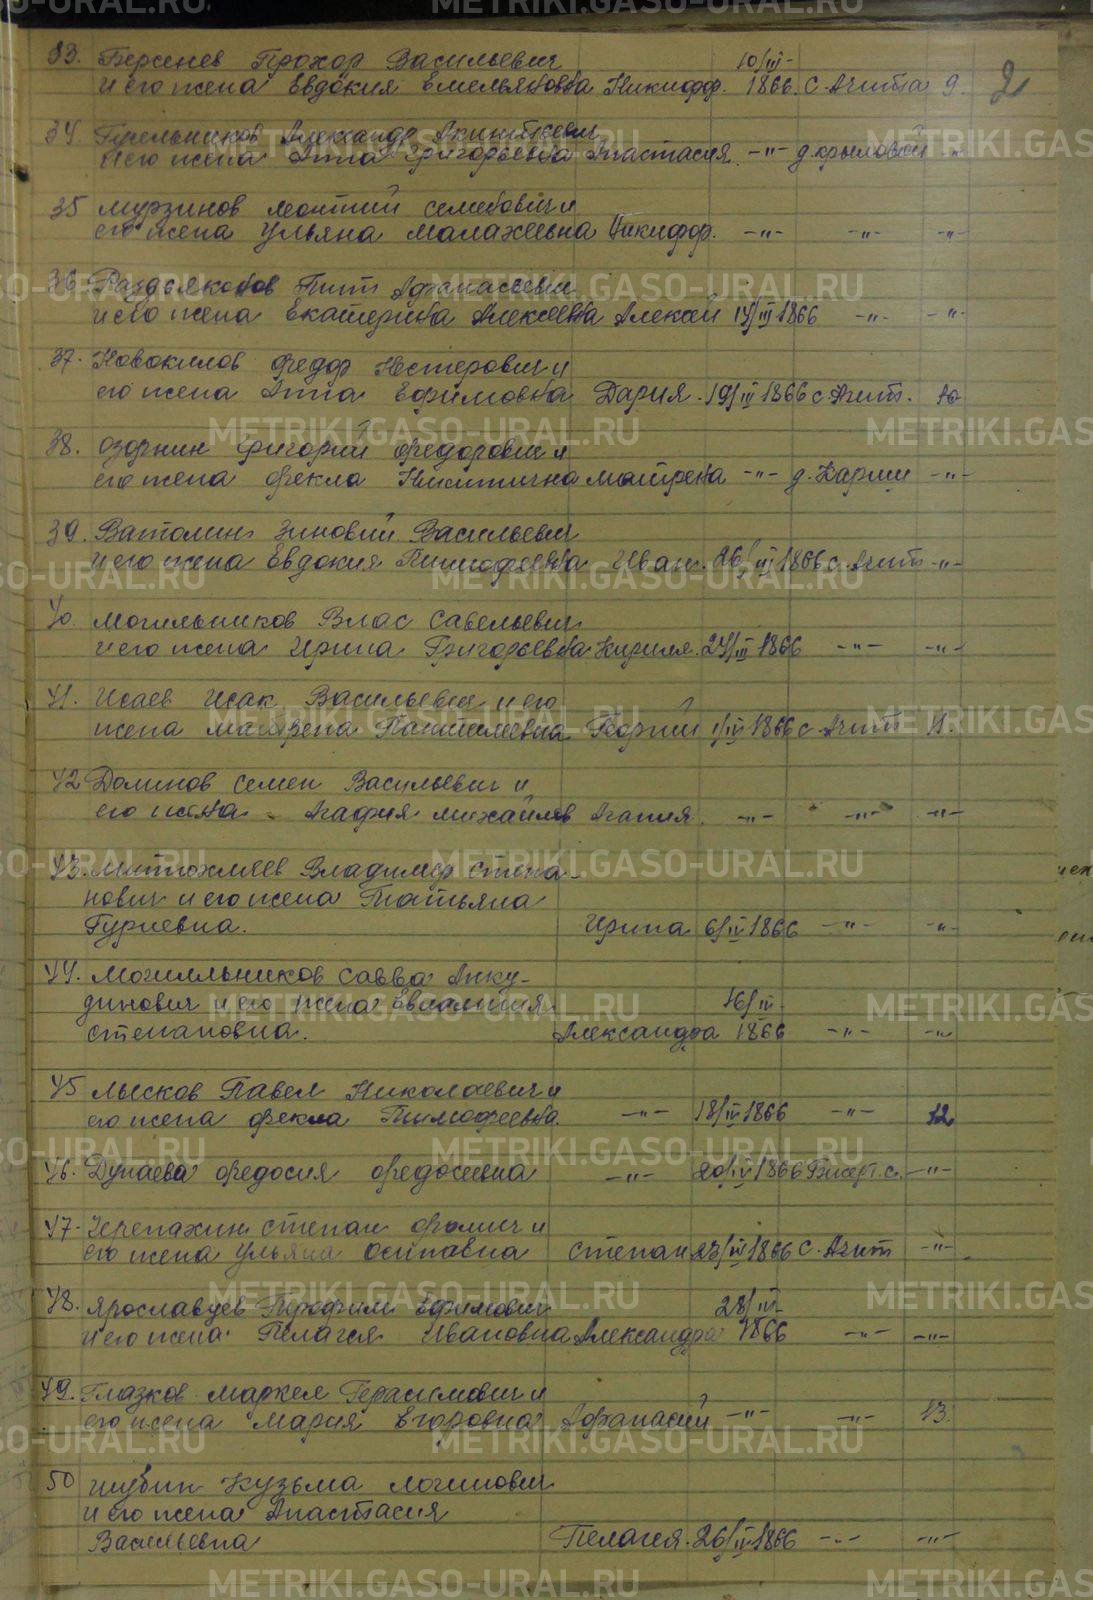 33. Берсенев Прохор Васильевич 10/III-
и его жена Евдокия Емельяновна Никифор. 1866. с. Ачита 9. 2
34. Александр
и его жена Анна Григорьевна Анастасия. -"- д. Крыловой -"-
35 Мурзинов Леонтий Семенович и
его жена Ульяна Малахеевна Никифор. -"- -"- -"-
36. Тит Афанасьевич
и его жена Екатерина Алексеевна Алексей 14/III 1866 -"- -"-
37. Новокилов Федор Нестерович и
его жена Анна Ефимовна Дария. 19/III 1866 с. Ачит. 10
38. Озорнин Григорий Федорович и
его жена Фекла Никитична Матрена -"- д. Карши -"-
39. Ватолин Зиновий Васильевич
и его жена Евдокия Тимофеевна Иван. 26/III 1866 с. Ачит -"-
40. Могильников Влас Савельевич
и его жена Ирина Григорьевна Кирилл. 27/III 1866 -"- -"-
41. Исаев Исак Васильевич и его
жена Матрена Пантилеевна Георгий 1/IV 1866 с. Ачит 11.
42 Долинов Семен Васильевич и
его жена Агафия Михайлов Агапия. -"- -"- -"-
43. Митохляев Владимир Степа-
нович и его жена Татьяна
Гуриевна. Ирина 6/IV 1866 -"- -"-
44. Могилльников Савва Анку-
динович и его жена Евлампия 16/IV-
Степановна. Александра 1866 -"- -"-
45 Лысков Павел Николаевич и
его жена Фекла Тимофеевна. -"- 18/IV 1866 -"- 12
46. Дунаева Федосия Федосеевна -"- 20/IV 1866 Бисерт. с. -"-
47. Черепахин Степан Фомич и
его жена Ульяна Осиповна Степан 23/IV 1866 с. Ачит -"-
48. Ярославцев Трофим Ефимович 28/IV-
и его жена Пелагея Ивановна Александра 1866 -"- -"-
49. Глазков Маркел Герасимович и
его жена Мария Егоровна Афанасий -"- -"- 13.
50 Шубин Кузьма Логинович
и его жена Анастасия
Васильевна Пелагея. 26/IV 1866 -"- -"-
METRIKI.GASO-URAL.RU